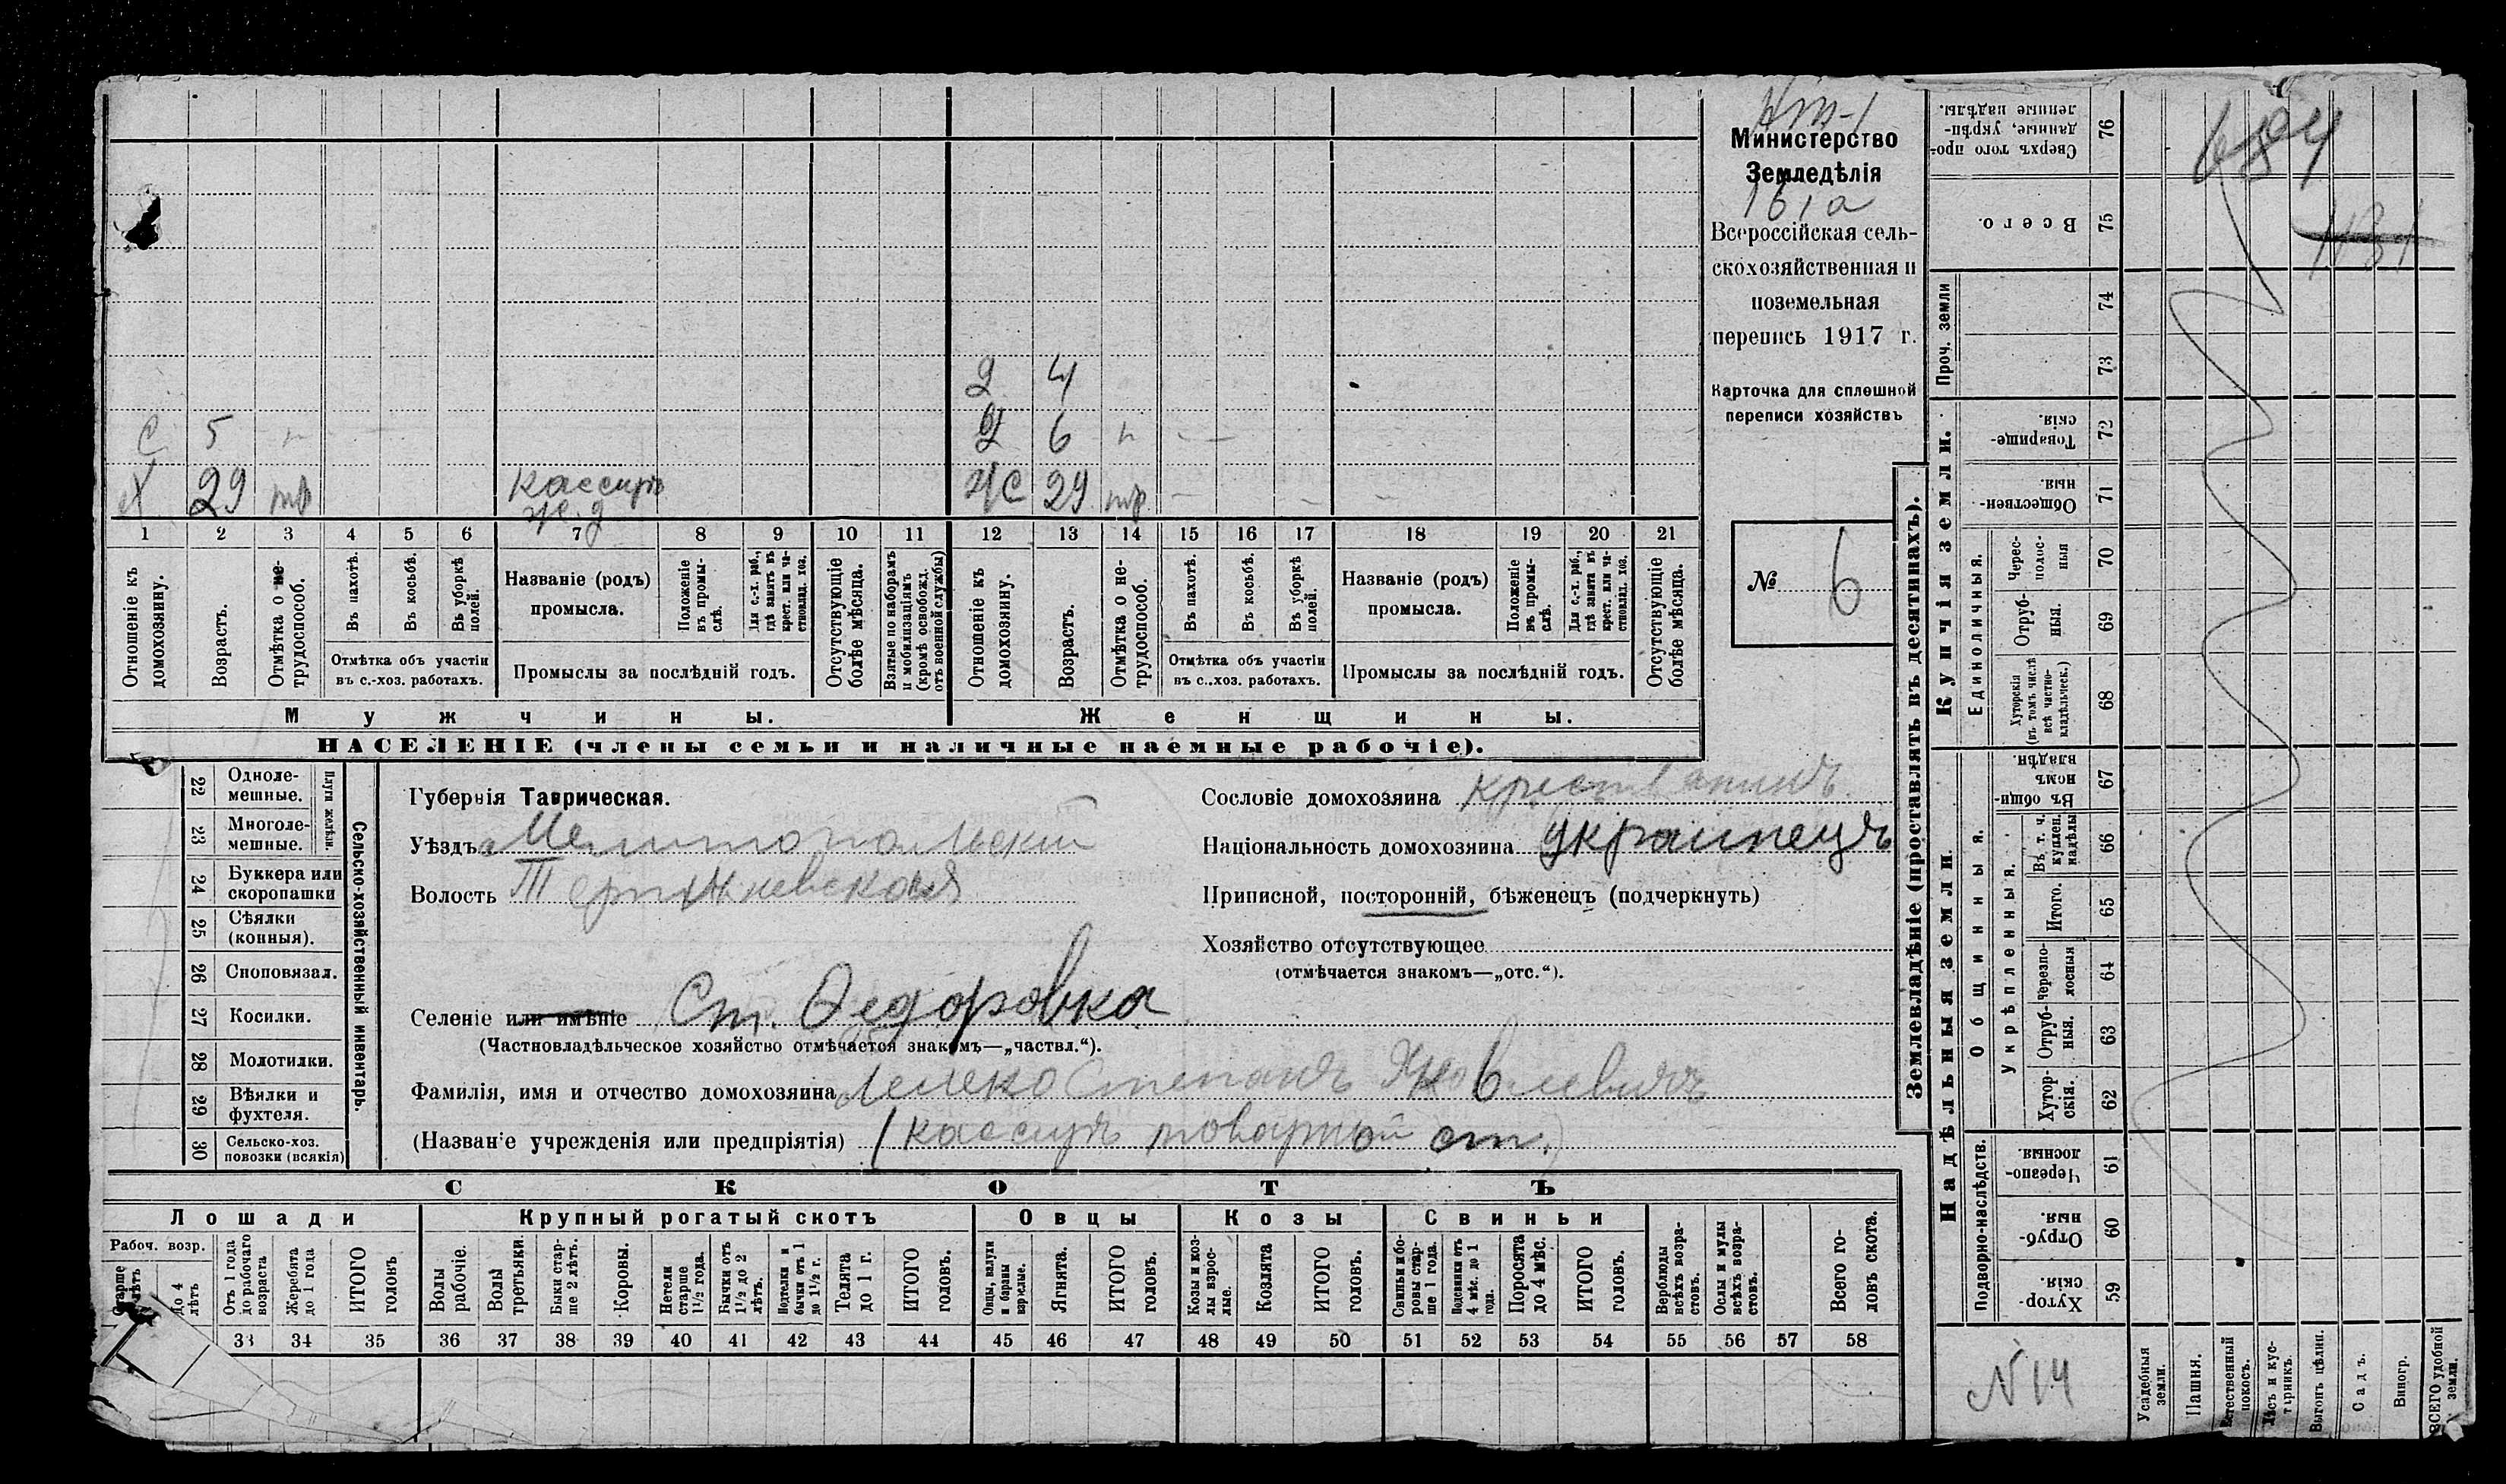 Министерство
Земледѣлія
161а
Всероссійская сель-
скохозяйственная и
поземельная
перепись 1917 г.
Карточка для сплошной
переписи хозяйствъ
№ 6
Д 4
С 5 н
Д 6 н
Х 29 тр Кассиръ
ж.д
Ж С 29 тр
1 2 3 4 5 6 7 8 9 10 11 12 13 14 15 16 17 18 19 20 21
Отношеніе къ домохозяину.
Возрастъ.
Отмѣтка о не-трудоспособ.
Въ пахотѣ.
Въ косьбѣ.
Въ уборкѣ полей.
Отмѣтка объ участіи въ с.-хоз. работахъ.
Названіе (родъ) промысла.
Положеніе въ промы-слѣ.
Для с.-х. раб., гдѣ занятъ въ крест. или ча-стновлад. хоз.
Промыслы за послѣдній годъ.
Отсутствующіе болѣе мѣсяца.
Взятые по наборамъ и мобилизаціямъ (кромѣ освобожд. отъ военной службы)
Отношеніе къ домохозяину.
Возрастъ.
Отмѣтка о не-трудоспособ.
Въ пахотѣ.
Въ косьбѣ.
Въ уборкѣ полей.
Отмѣтка объ участіи въ с..хоз. работахъ.
Названіе (родъ) промысла.
Положеніе въ промы-слѣ.
Для с.-х. раб., гдѣ занята въ крест. или ча-стновлад. хоз.
Промыслы за послѣдній годъ.
Отсутствующіе болѣе мѣсяца.
Мужчины. Женщины.
НАСЕЛЕНІЕ (члены семьи и наличные наемные рабочіе).
Сельско-хозяйственный инвентарь.
Плуги желѣзн.
22 Одноле-мешные.
23 Многоле-мешные.
24 Буккера или скоропашки
25 Сѣялки (конныя).
26 Сноповязал.
27 Косилки.
28 Молотилки.
29 Вѣялки и фухтеля.
30 Сельско-хоз. повозки (всякія)
Губернія Таврическая.
Уѣздъ Мелитопольскій
Волость
Селеніе или имѣніе Ст. Ѳедоровка
(Частновладѣльческое хозяйство отмѣчается знакомъ—„частвл.“).
Фамилія, имя и отчество домохозяина Лелеко Степанъ Яковлевичъ
(Названіе учрежденія или предпріятія) (кассиръ товарный ст.)
Сословіе домохозяина крестьянинъ.
Національность домохозяина украинецъ
Приписной, посторонній, бѣженецъ (подчеркнуть)
Хозяйство отсутствующее
(отмѣчается знакомъ—„отс.“).
СКОТЪ
Лошади Крупный рогатый скотъ Овцы Козы Свиньи
Рабоч. возр.
Старше лѣтъ
До 4 лѣтъ
Отъ 1 года до рабочаго возраста
Жеребята до 1 года
ИТОГО головъ
Волы рабочіе.
Волы третьяки.
Быки стар-ше 2 лѣтъ.
Коровы.
Нетели старше 1½ года.
Бычки отъ 1½ до 2 лѣтъ.
Подтелки и бычки отъ 1 до 1½ г.
Телята до 1 г.
ИТОГО головъ.
Овцы, валухи и бараны взрослые.
Ягнята.
ИТОГО головъ.
Козы и коз-лы взрос-лые.
Козлята
ИТОГО головъ.
Свиньи и бо-ровы стар-ше 1 года.
Подсвинки отъ 4 мѣс. до 1 года.
Поросята до 4 мѣс.
ИТОГО головъ.
Верблюды всѣхъ возра-стовъ.
Ослы и мулы всѣхъ возра-стовъ.
Всего го-ловъ скота.
33 34 35 36 37 38 39 40 41 42 43 44 45 46 47 48 49 50 51 52 53 54 55 56 57 58
Землевладѣніе (проставлять въ десятинахъ).
Купчія земли.
Проч. земли
Единоличныя.
Надѣльныя земли.
Общинныя.
Укрѣпленныя.
Подворно-наслѣдств.
76 Сверхъ того про-данные, укрѣп-ленные надѣлы.
75 Всего.
74
73
72 Товарище-скія.
71 Обществен-ныя.
70 Черес-полос-ныя
69 Отруб-ныя.
68 Хуторскія (въ томъ числѣ всѣ частно-владѣльческ.)
67 Въ общи-номъ владѣн.
66 Въ т. ч. куплен. надѣлы
65 Итого.
64 Черезпо-лосныя
63 Отруб-ныя.
62 Хутор-скія.
61 Черезпо-лосныя.
60 Отруб-ныя.
59 Хутор-скія.
N14
Усадебныя земли.
Пашня.
Естественный покосъ.
Лѣсъ и кус-тарникъ.
Выгонъ цѣлин.
Садъ.
Виногр.
ВСЕГО удобной земли.